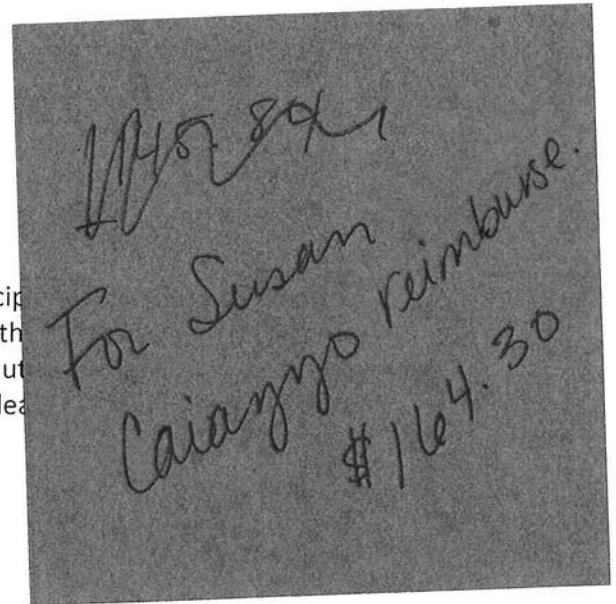 For Susan
Caiazzo reimburse.
$164.30
cip
th
ut
lea